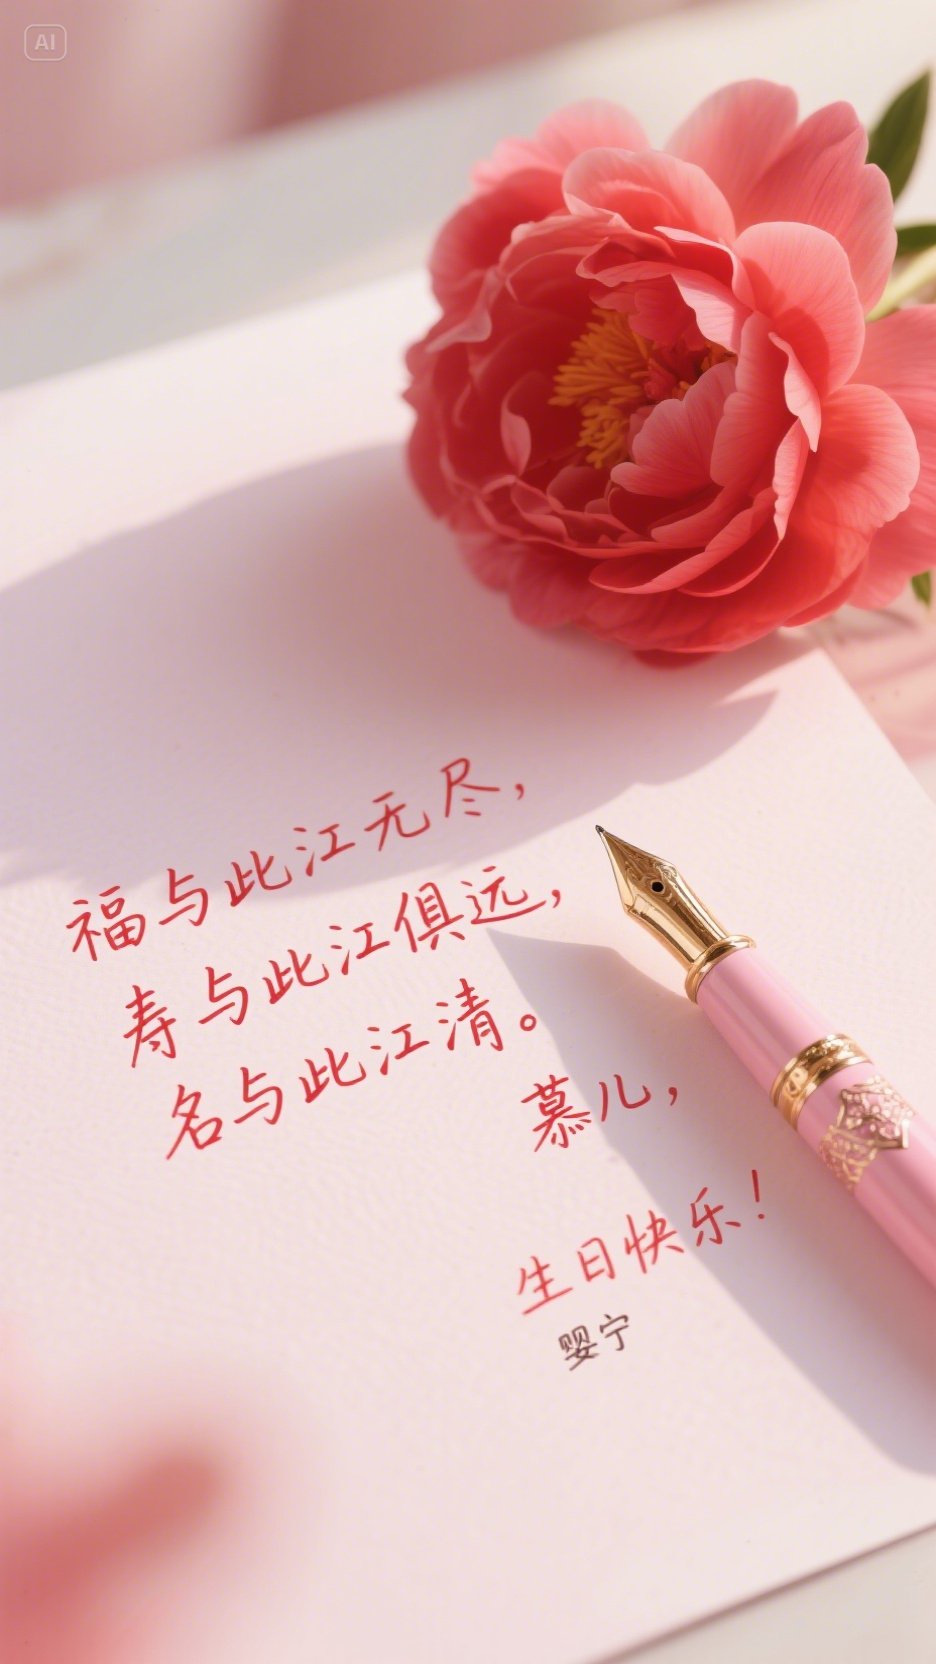 AI
福与此江无尽，
寿与此江俱远，
名与此江清。
慕儿，
生日快乐！
婴宁